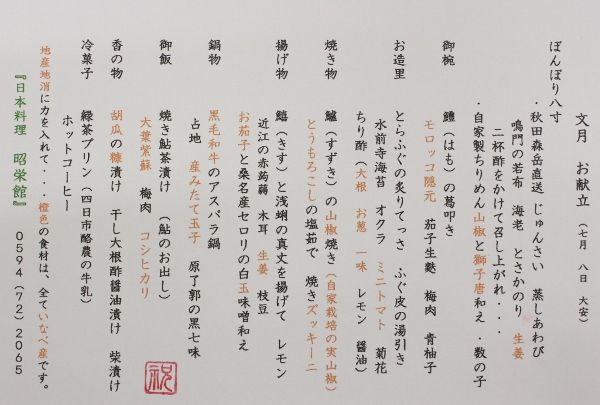 文月　お献立　（七月　八日　大安）
ぼんぼり八寸
・秋田森岳直送 じゅんさい　蒸しあわび
鳴門の若布　海老　とさかのり　生姜
二杯酢をかけて召し上がれ・・・
・自家製ちりめん山椒と獅子唐和え・数の子
御椀　鱧（はも）の葛叩き
モロッコ隠元　茄子生麩　梅肉　青柚子
お造里　とらふぐの炙りてっさ　ふぐ皮の湯引き
水前寺海苔　オクラ　ミニトマト　菊花
ちり酢（大根　お葱　一味　レモン　醤油）
焼き物　鱸（すずき）の山椒焼き（自家栽培の実山椒）
とうもろこしの塩茹で　焼きズッキーニ
揚げ物　鱚（きす）と浅蜊の真丈を揚げて　レモン
近江の赤蒟蒻　木耳　生姜　枝豆
お茄子と桑名産セロリの白玉味噌和え
鍋物　黒毛和牛のアスパラ鍋
占地　産みたて玉子　原了郭の黒七味
御飯　焼き鮎茶漬け　（鮎のお出し）
大葉紫蘇　梅肉　コシヒカリ
香の物　胡瓜の糠漬け　干し大根酢醤油漬け　柴漬け
冷菓子　緑茶プリン（四日市酪農の牛乳）
ホットコーヒー
地産地消に力を入れて・・・橙色の食材は、全ていなべ産です。
『日本料理　昭栄館』　０５９４（７２）２０６５
祝